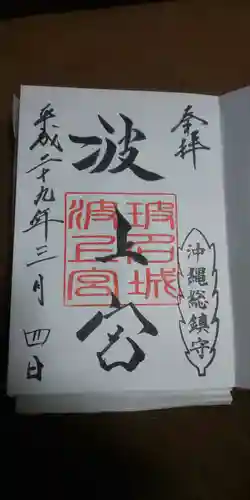 奉拝
沖縄総鎮守
波上宮
波上宮
平成二十九年三月四日